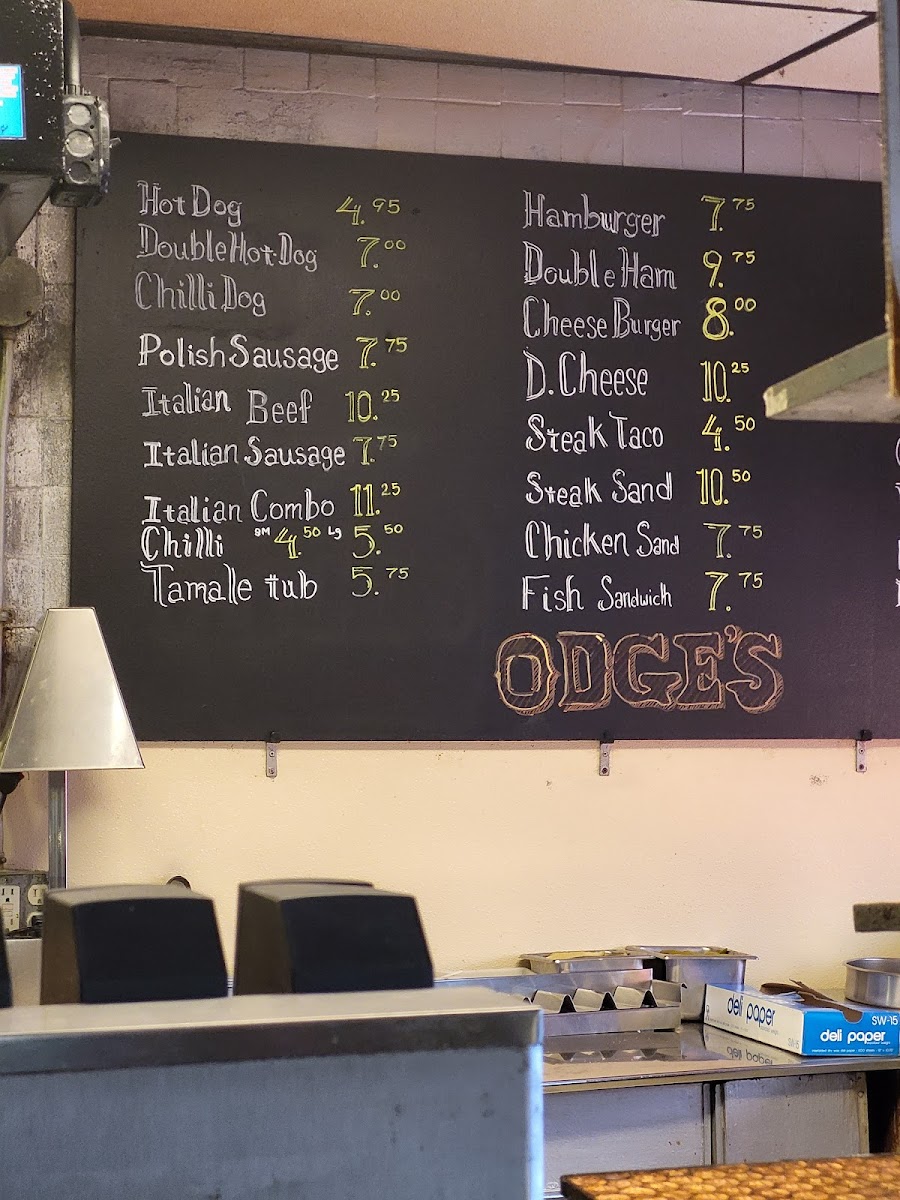 Hot Dog 4.95
Double Hot Dog 7.00
Chilli Dog 7.00
Polish Sausage 7.75
Italian Beef 10.25
Italian Sausage 7.75
Italian Combo 11.25
Chilli SM 4.50 Lg 5.50
Tamalle tub 5.75
Hamburger 7.75
Double Ham 9.75
Cheese Burger 8.00
D. Cheese 10.25
Steak Taco 4.50
Steak Sand 10.50
Chicken Sand 7.75
Fish Sandwich 7.75
ODGE'S
deli paper
SW-15
deli paper